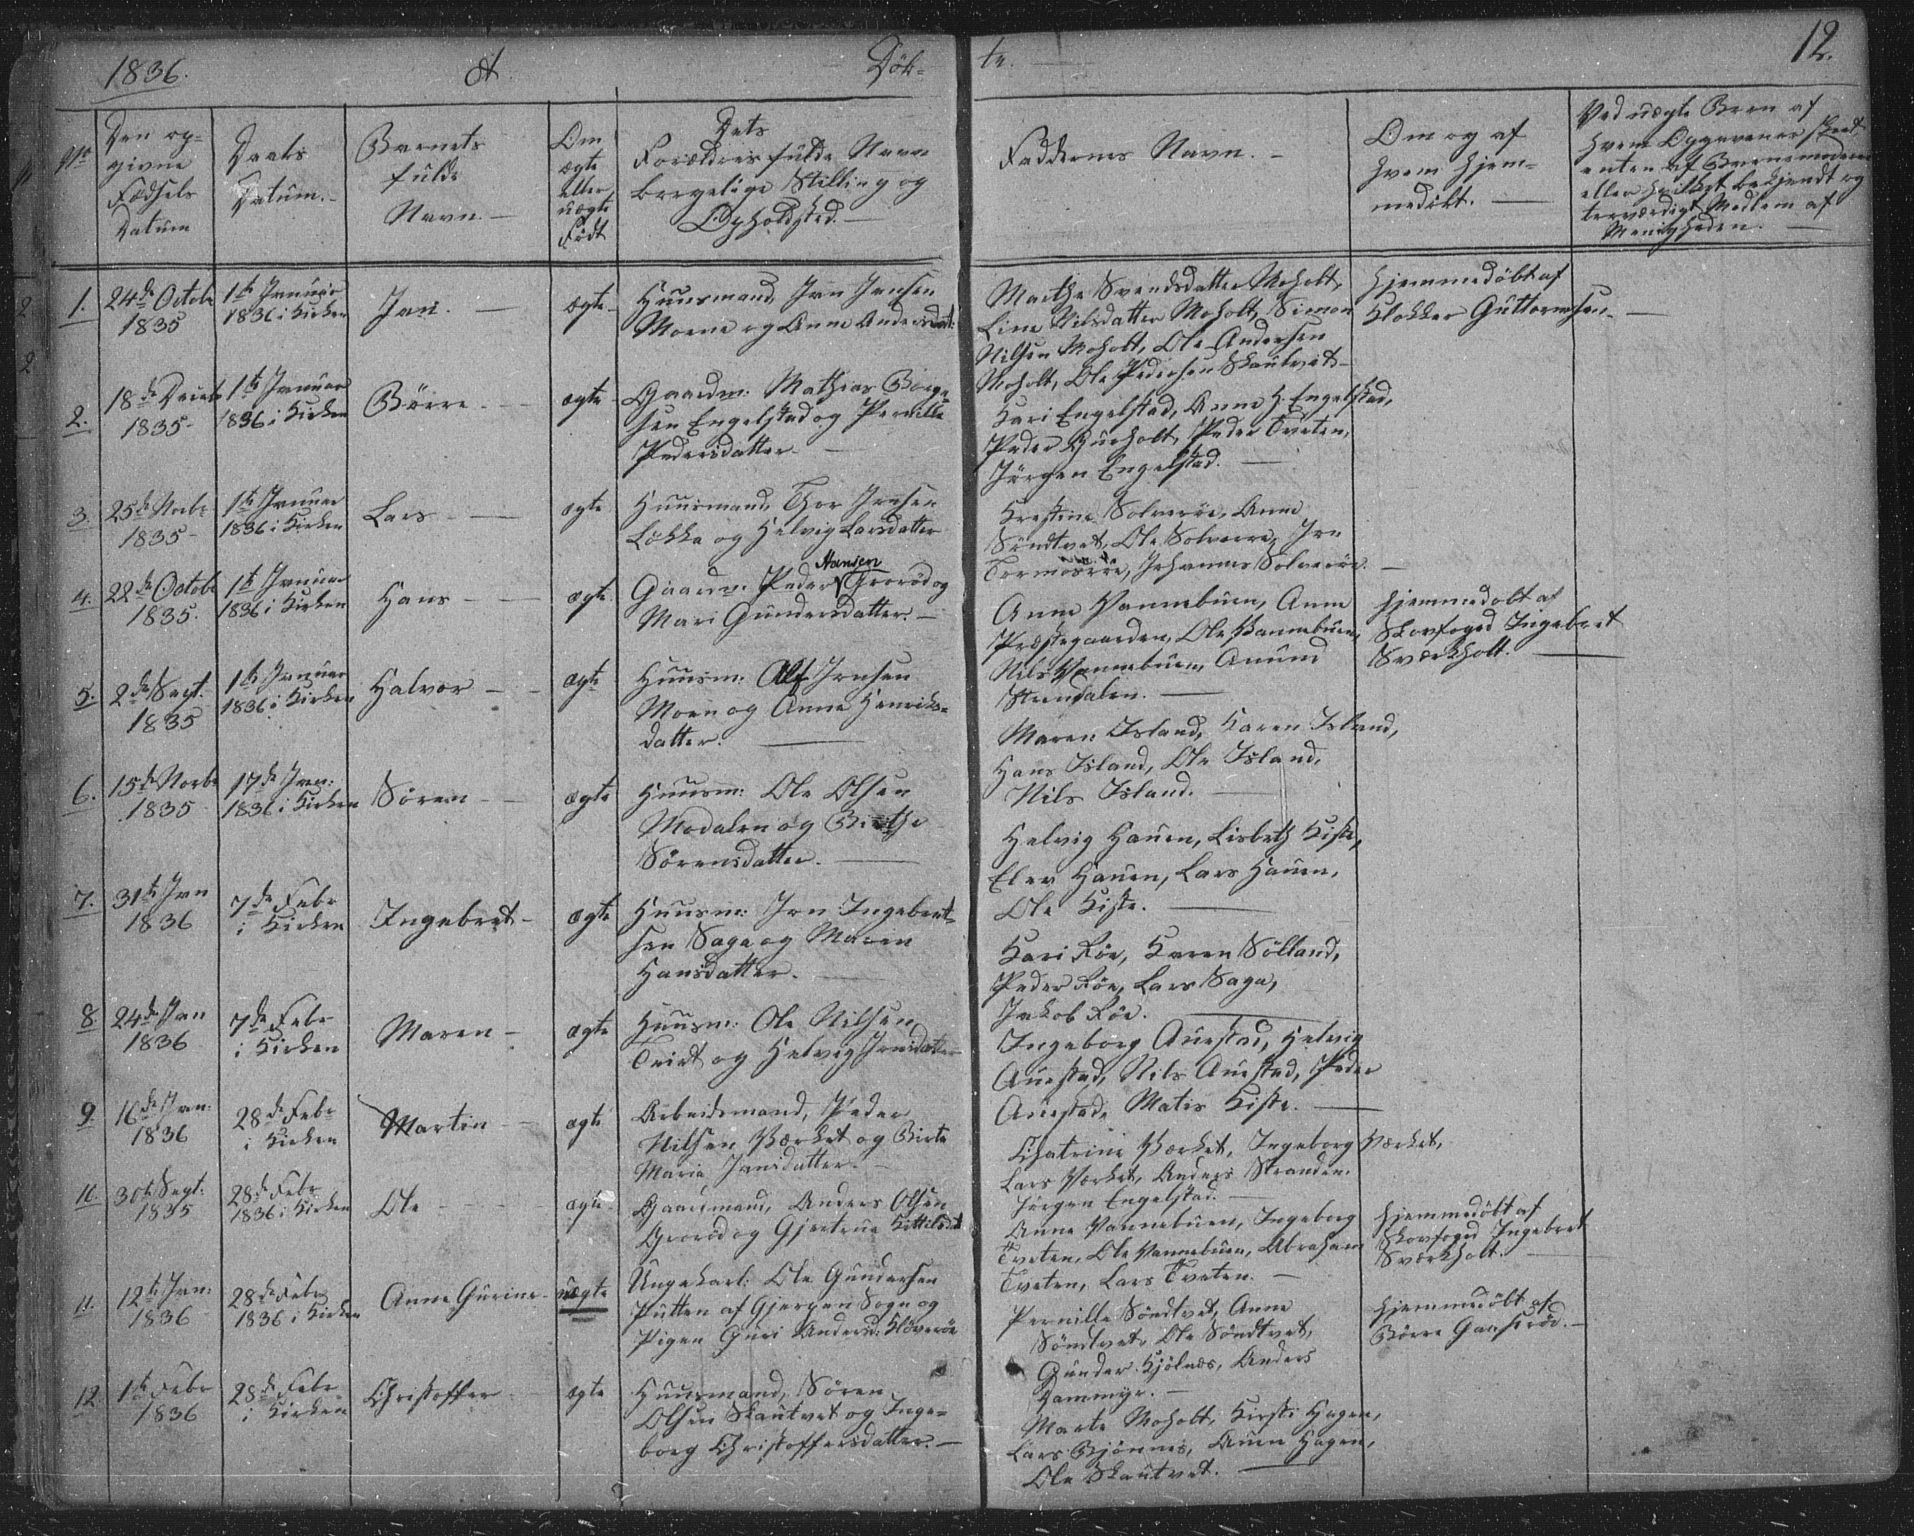 1836.
A
Døb-
te.
12.
No
Den op-
givne
Fødsels
Datum
Daabs
Datum.
Barnets
fulde
Navn.
Om
ægte
eller
uægte
Født
Dets
Forældres fulde Navn
borgelige Stilling og
Opholdsted.
Faddernes Navn.
Om og af
hvem hjem-
medøbt.
Ved uægte Børn af
hvem Opgavene
enten af Barnemoderen
eller bekjendt og
troværdigt Medlem af
Menigheden.
1.
24de Octobr
1835
1te Januar
1836 i Kirken
Jan.
ægte
Huusmand, Jan Jansen
Moene og Anne Andersdat:
Marthe Svendsdatter Moholt,
Line Nilsdatter Moholt, Simon
Nilsen Moholt, Ole Andersen
Moholt, Ole Pedersen Skautvet
Hjemmedøbt af
Klokker Guttormsen.
2.
18de
1835
1te Januar
1836 i Kirken
Børre.
ægte
Gaardm: Mathias Børre-
sen Engelstad og Pernille
Pedersdatter.
Kari Engelstad, Anne H. Engelstad,
Peder Gurholt, Peder Tveten,
Jørgen Engelstad.
3.
25de Novbr
1835
1te Januar
1836 i Kirken
Lars
ægte
Huusmand, Thor Jensen
Løkka og Helvig Larsdatter
Kirstine Solverøe, Anne
Søndtvet, Ole Solverøe, Jon
Tormosrøe, Johannes Solverøe.
4.
22de Octobr
1835.
1te Januar
1836 i Kirken
Hans
ægte
Gaardm: Peder Hansen Grorød og
Mari Gundersdatter.
Anne Vannebuen, Anne
Præstegaarden, Ole Vannebuen,
Nils Vannebuen, Amund
Steendalen.
Hjemmedøbt af
Skovfoged Ingebret
Sværkholt.
5.
2de Sept.
1835
1te Januar
1836 i Kirken
Halvor
ægte
Huusm: Alf Jensen
Moen og Anne Henriks-
datter.
Maren Island, Karen Island,
Hans Island, Ole Island,
Nils Island.
6.
15de Novbr
1835
17de Jan:
1836 i Kirken
Sørem
ægte
Huusm: Ole Olsen
Modalen og Birthe
Sørensdatter.
Helvig Hauen, Lisbeth Kiste,
Elev Hauen, Lars Hauen,
Ole Kiste.
7.
31te Jan
1836
7de Febr
i Kirken
Ingebret
ægte
Huusm: Jon Ingebret-
sen Saga og Maren
Hansdatter.
Kari Røe, Karen Sølland,
Peder Røe, Lars Saga,
Jakob Røe.
8
24de Jan
1836
7de Febr
i Kirken
Maren
ægte
Huusm: Ole Nilsen
Tvidt og Helvig Jensdatter
Ingeborg Auestad, Helvig
Auestad, Nils Auestad, Peder
Auestad, Mates Kiste.
9
16de Jan:
1836
28de Febr
i Kirken
Martin
ægte
Arbeidsmand, Peder
Nilsen Værket og Birte
Maria Jansdatter.
Chatrine Værket, Ingeborg Værket,
Lars Værket, Anders Stranden.
Jørgen Engelstad.
10.
30te Sept:
1835
28de Febr
1836 i Kirken
Ole
ægte
Gaardmand, Anders Olsen
Grorød og Gjertrue Kittilsdt
Anne Vannebuen, Ingeborg
Tveten, Ole Vannebuen, Abraham
Tveten, Lars Tveten.
Hjemmedøbt af
Skovfoged Ingebret
Sværkholt.
11.
12te Jan:
1836
28de Febr
1836 i Kirken
Anne Gurine
uægte
Ungekarl: Ole Gundersen
Putten af Gjerpen Sogn og
Pigen Guri Andersd: Kløverøe
Pernille Søndtvet, Anne
Søndtvet, Ole Søndtvet,
Gunder Kjølnæs, Anders
Dammyr.
Hjemmedøbt af
Børre Gaasrød.
12.
1te Febr
1836
28de Febr
i Kirken
Christoffer
ægte
Huusmand, Søren
Olsen Skautvet og Inge-
borg Christoffersdatter.
Marte Moholt, Kirsti Hagen,
Lars Bjønnes, Aven Hagen,
Ole Skautvet.